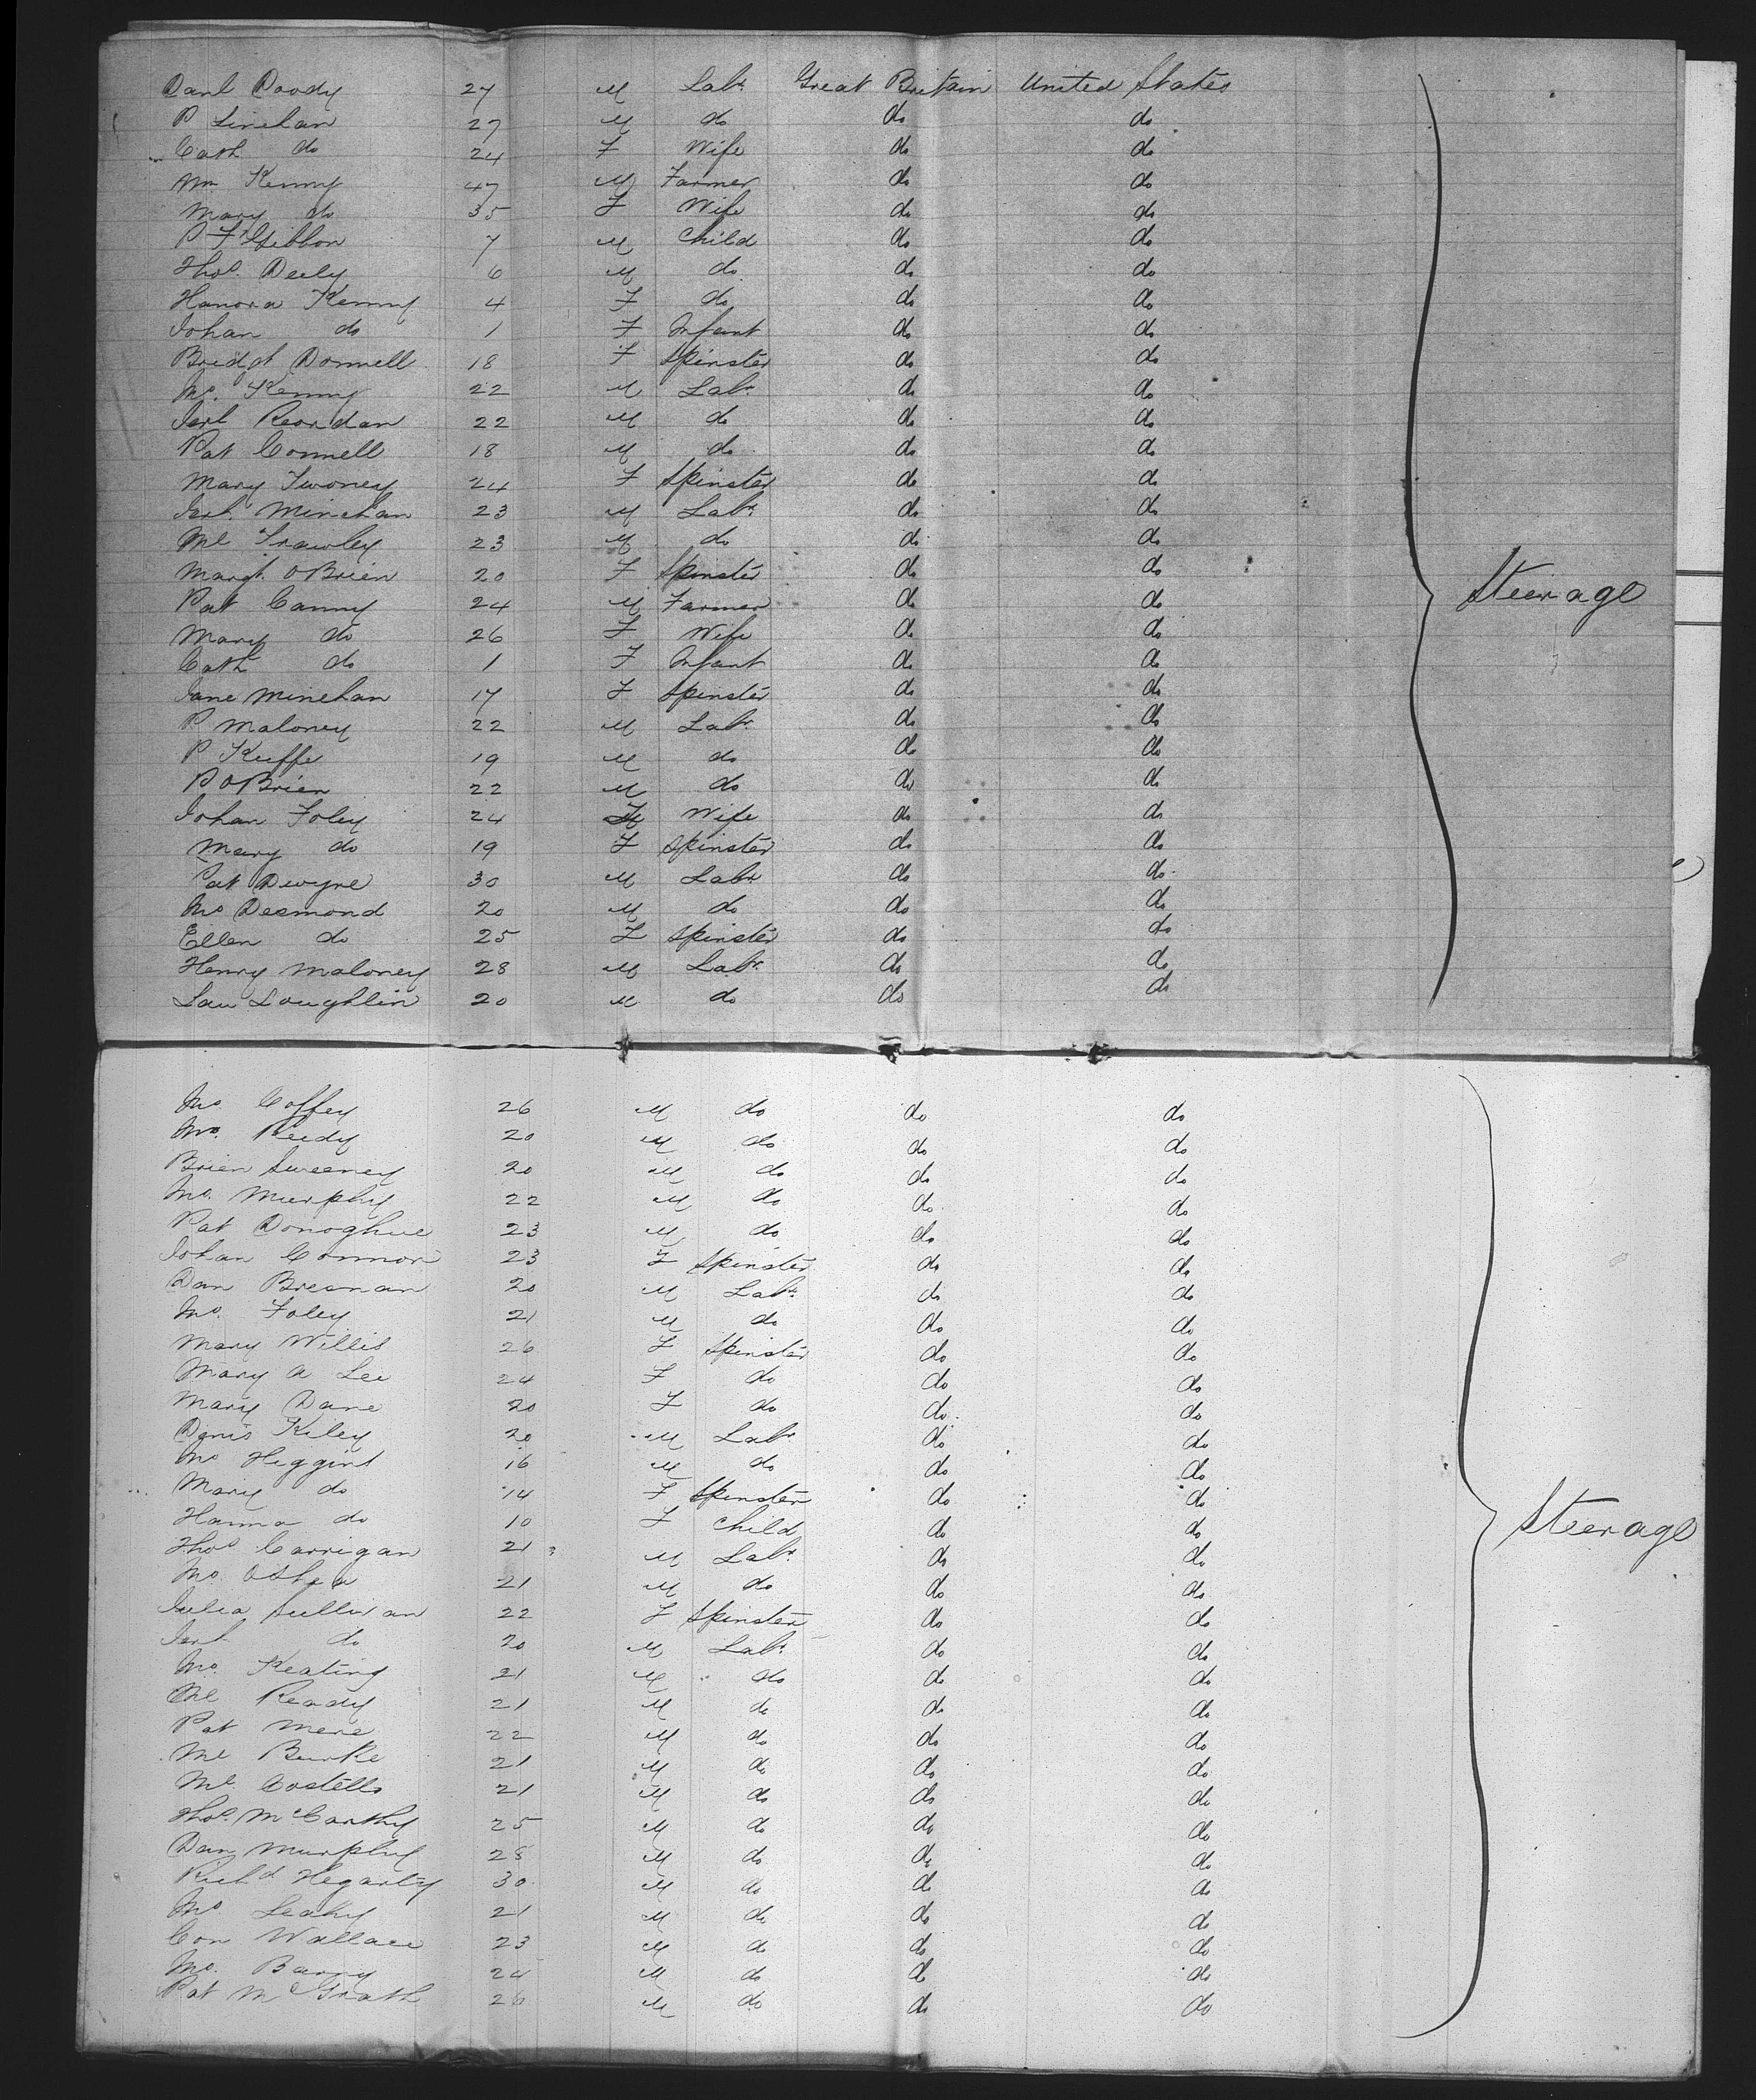 Danl Doody 27 M Labr. Great Britain United States
P Linehan 27 M do do do
Cath do 24 F Wife do do
Wm Kenny 47 M Farmer do do
Mary do 35 F Wife do do
P FzGibbon 7 M Child do do
Thos. Deely 6 M do do do
Hanora Kenny 4 F do do do
Johan do 1 F Infant do do
Bridgt Donnell 18 F Spinster do do
Jno. Kenny 22 M Labr. do do
Jerh Reordan 22 M do do do
Pat Connell 18 M do do do
Mary Twoney 24 F Spinster do do
Jerh. Minehan 23 M Labr. do do
Ml Frawley 23 M do do do
Margt. OBrien 20 F Spinster do do
Pat Canny 24 M Farmer do do
Steerage
Mary do 26 F Wife do do
Cath do 1 F Infant do do
Jane Minehan 17 F Spinster do do
P Maloney 22 M Labr. do do
P Keeffe 19 M do do do
P OBrien 22 M do do do
Johan Foley 24 F Wife do do
Mary do 19 F Spinster do do
Pat Dwyne 30 M Labr. do do
Jno Desmond 20 M do do do
Ellen do 25 F Spinster do do
Henry Maloney 28 M Labr. do do
Lau Loughlin 20 M do do do
Jno. Coffey 26 M do do do
Jno. Reedy 20 M do do do
Brien Sweeney 20 M do do do
Jno. Murphy 22 M do do do
Pat Donoghue 23 M do do do
Johan Connor 23 F Spinster do do
Dan Bresnan 20 M Labr. do do
Jno. Foley 21 M do do do
Mary Willis 26 F Spinster do do
Mary A Lee 24 F do do do
Mary Dane 20 F do do do
Denis Kiley 20 M Labr. do do
Jno Higgins 16 M do do do
Mary do 14 F Spinster do do
Hanna do 10 F Child do do
Steerage
Thos Carrigan 21 M Labr. do do
Jno. OShea 21 M do do do
Julia Sullivan 22 F Spinster do do
Jerh do 20 M Labr. do do
Jno. Keating 21 M do do do
Ml Ready 21 M do do do
Pat 22 M do do do
Ml Burke 21 M do do do
Ml. Costello 21 M do do do
Thos. McCarthy 25 M do do do
Dan Murphy 28 M do do do
Richd Hegarty 30 M do do do
Jno Leahy 21 M do do do
Con Wallace 23 M do do do
Jno. Barry 24 M do do do
Pat McGrath 26 M do do do